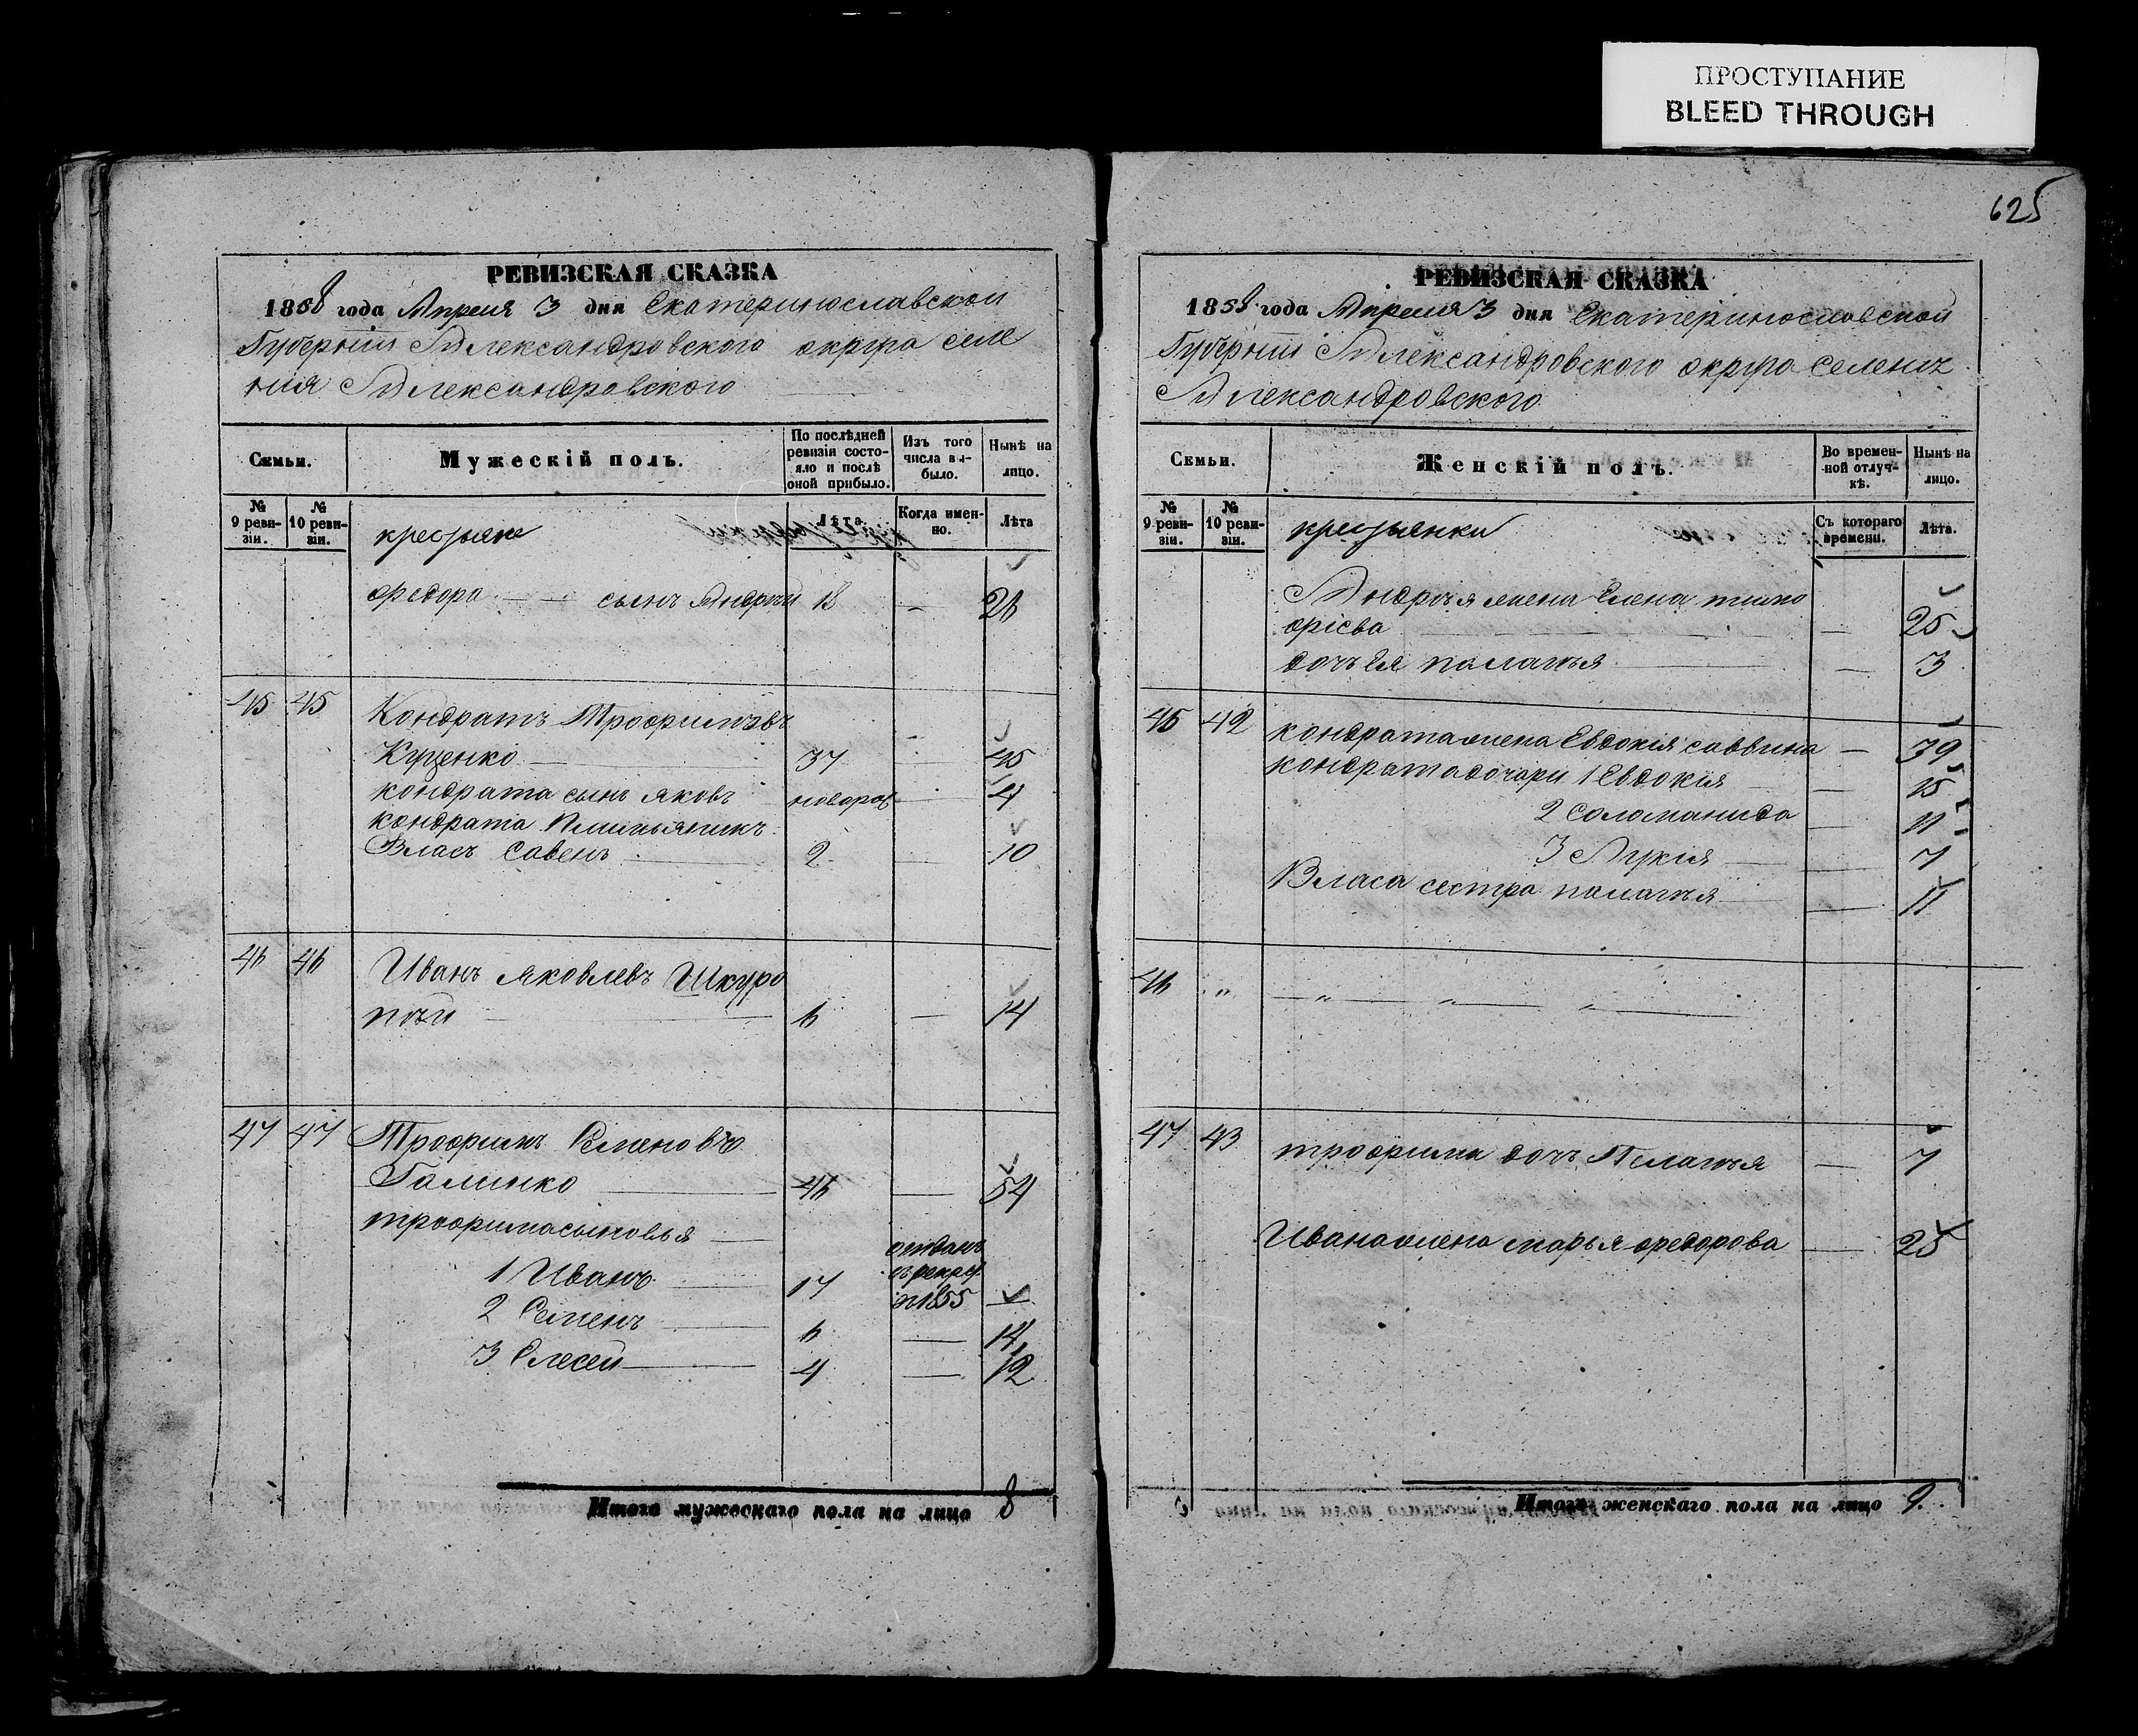 ПРОСТУПАНИЕ
BLEED THROUGH
625
РЕВИЗСКАЯ СКАЗКА
1858 года Апреля 3 дня Екатеринославской
Губернии Александровского округа селе
ния Александровского
Семьи.
Мужескій полъ.
По послѣдней ревизіи состояло и послѣ оной прибыло.
Изъ того числа выбыло.
Нынѣ на лицо.
№ 9 ревизіи.
№ 10 ревизіи.
крестьяне
Лѣта
Когда именно.
Лѣта
Федора — сынъ Андрѣй 18 — 26
45 45 Кондратъ Трофимовъ
Куценко — 37 — 45
кондрата сынъ яковъ новорож — 4
кондрата племьяникъ
Власъ Савенъ — 2 — 10
46 46 Иванъ яковлевъ Шкуро
пѣй — 6 — 14
47 47 Трофимъ Семеновъ
Галинко — 46 — 54
трофима сыновья —
1 Иванъ — 17 отданъ въ рекру въ 1855 —
2 Семенъ — 6 — 14
3 Елесей — 4 — 12
Итого мужескаго пола на лицо 8
РЕВИЗСКАЯ СКАЗКА
1858 года Апреля 3 дня Екатеринославской
Губерніи Александровского округа Селеніе
Александровского
Семьи.
Женскій полъ.
Во временной отлучкѣ.
Нынѣ на лицо.
№ 9 ревизіи.
№ 10 ревизіи.
крестьянки
Съ котораго времени.
Лѣта.
Андрѣя жена Елена тимо
фіева — 25
дочь Ея палажья — 3
45 42 кондрата жена Евдокія саввина — 39
кондрата дочари 1 Евдокія — 15
2 Саломанида — 11
3 Лукія — 7
Власа сестра палажья — 11
46 " — " — " — " —
47 43 трофима дочь Пелажья — 7
Ивана жена марья федорова — 25
Итого женскаго пола на лицо 9.